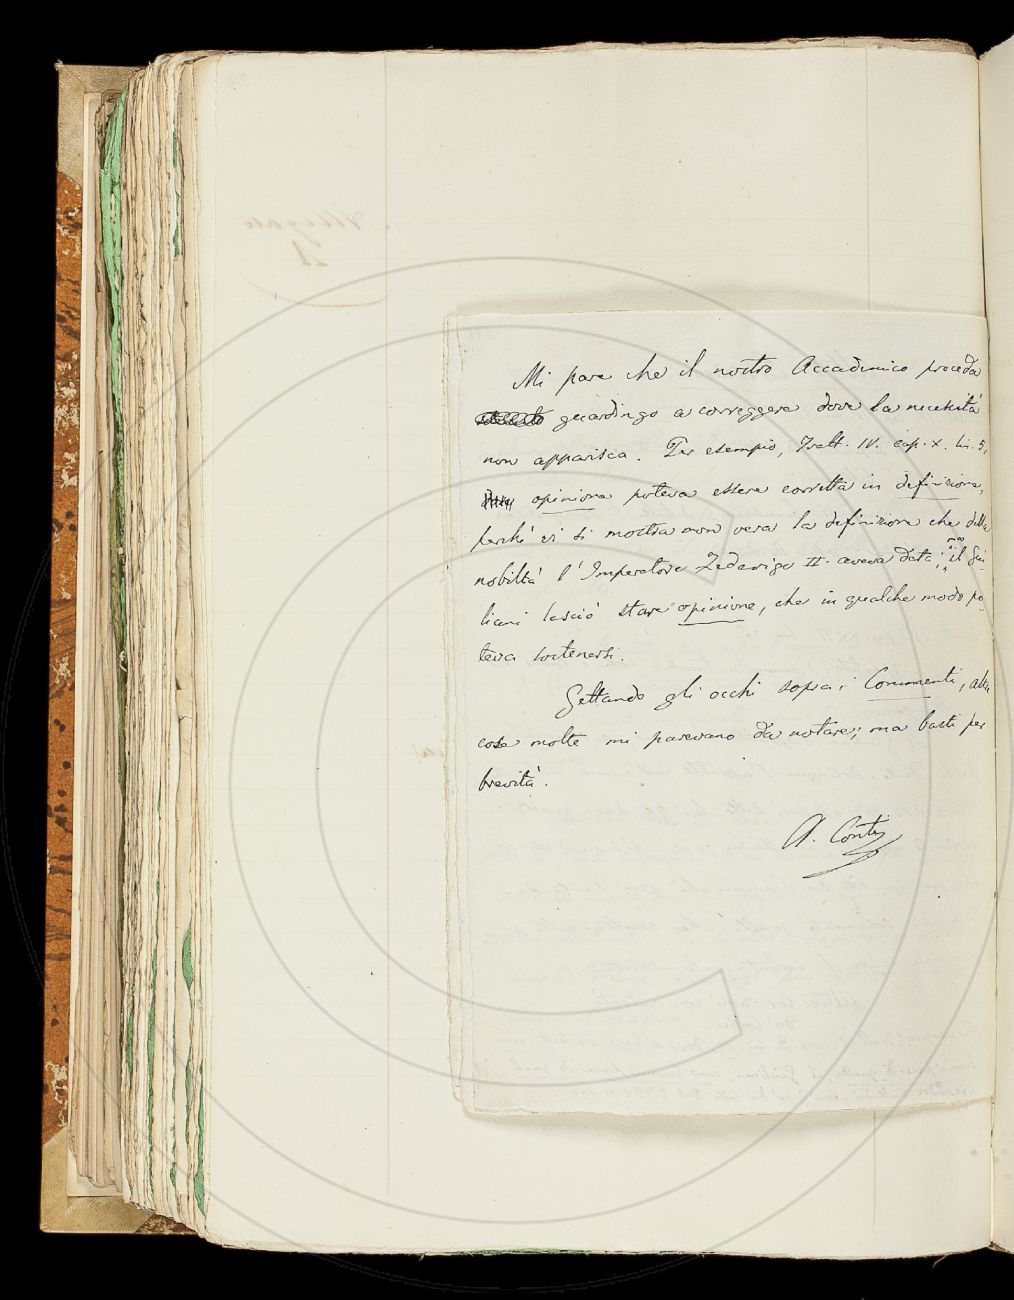 Mi pare che il nostro Accademico proceda
guardingo a correggere dove la necessità
non apparisca. Per esempio, Tratt. IV. cap. X. lin. 5,
opinione poteva essere corretta in definizione,
perchè ei si mostra non vera la definizione che della
nobiltà l'Imperatore Federigo II. aveva data; ma il Giu-
liani lasciò stare opinione, che in qualche modo po-
teva sostenersi.
Gettando gli occhi sopra i Commenti, altre
cose molte mi parevano da notare; ma basti per
brevità.
A. Conti